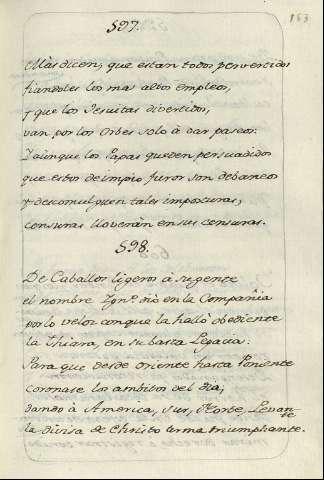 163
597.
Màs dicen, que estan todos pervertidos
fiandoles los mas altos empleos,
y que los Jesuitas divertidos,
van por los Orbes solo à dar paseos:
Y aùnque los Papas queden persuadidos
que estos de impio furor son debaneos
y descomulguen tales imposturas,
censuras lloveràn en sus censuras.
598.
De Caballos ligeros à su gente
el nombre Ign.º diò en la Compañia
por lo veloz conque la hallò obediente
la Thiara, en su basta
Para que desde oriente hasta Poniente
Coronase los ambitos del dia,
dando à America, sur, Norte, Levante
la divisa de Christo arma triumphante.